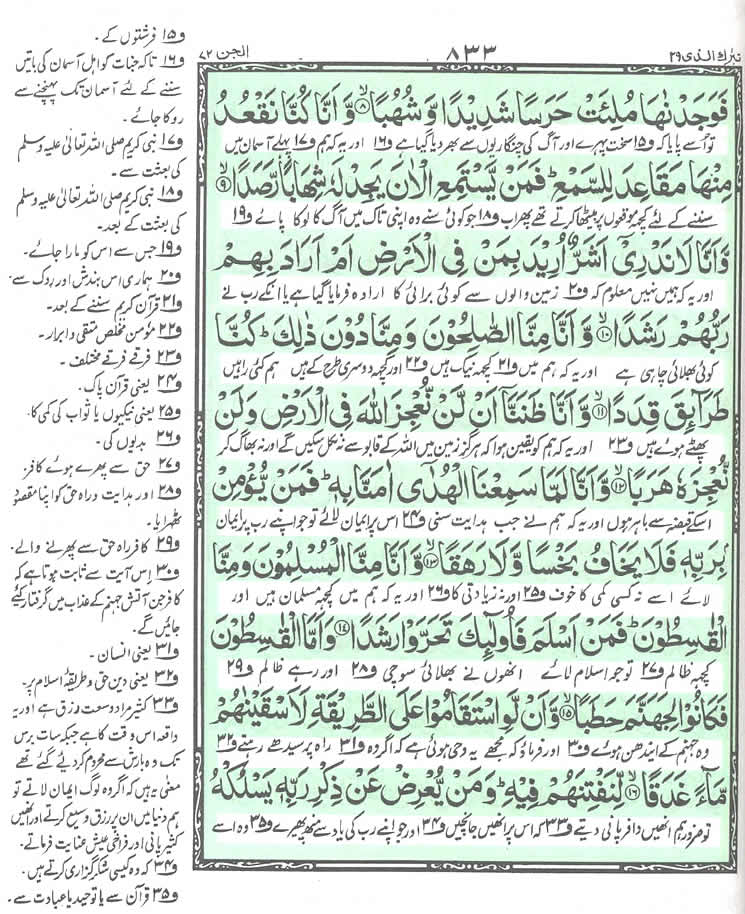 تبٰرک الذی ۲۹
۸۳۳
الجن ۷۲
فَوَجَدْنٰهَا مُلِئَتْ حَرَسًا شَدِیْدًا وَّ شُهُبًا ۙ﴿۸﴾ وَّ اَنَّا كُنَّا نَقْعُدُ
تو اسے پایا کہ ف۱۵ سخت پہرے اور آگ کی چنگاریوں سے بھر دیا گیا ہے ف۱۶ اور یہ کہ ہم ف۱۷ پہلے آسمان میں
مِنْهَا مَقَاعِدَ لِلسَّمْعِ ؕ فَمَنْ یَّسْتَمِعِ الْاٰنَ یَجِدْ لَهٗ شِهَابًا رَّصَدًا ۙ﴿۹﴾
سننے کے لئے کچھ موقعوں پر بیٹھا کرتے تھے پھر اب ف۱۸ جو کوئی سنے وہ اپنی تاک میں آگ کا لوکا پائے ف۱۹
وَّ اَنَّا لَا نَدْرِیْۤ اَشَرٌّ اُرِیْدَ بِمَنْ فِی الْاَرْضِ اَمْ اَرَادَ بِهِمْ
اور یہ کہ ہمیں نہیں معلوم کہ ف۲۰ زمین والوں سے کوئی برائی کا ارادہ فرمایا گیا ہے یا انکے رب نے
رَبُّهُمْ رَشَدًا ۙ﴿۱۰﴾ وَّ اَنَّا مِنَّا الصّٰلِحُوْنَ وَ مِنَّا دُوْنَ ذٰلِكَ ؕ كُنَّا
کوئی بھلائی چاہی ہے اور یہ کہ ہم میں ف۲۱ کچھ نیک ہیں ف۲۲ اور کچھ دوسری طرح کے ہیں ہم کئی راہیں
طَرَآىِٕقَ قِدَدًا ۙ﴿۱۱﴾ وَّ اَنَّا ظَنَنَّاۤ اَنْ لَّنْ نُّعْجِزَ اللّٰهَ فِی الْاَرْضِ وَ لَنْ
پھٹے ہوئے ہیں ف۲۳ اور یہ کہ ہم کو یقین ہوا کہ ہرگز زمین میں اللہ کے قابو سے نہ نکل سکیں گے اور نہ بھاگ کر
نُّعْجِزَهٗ هَرَبًا ۙ﴿۱۲﴾ وَّ اَنَّا لَمَّا سَمِعْنَا الْهُدٰۤی اٰمَنَّا بِهٖ ؕ فَمَنْ یُّؤْمِنْۢ
اسکے قبضہ سے باہر ہوں اور یہ کہ ہم نے جب ہدایت سنی ف۲۴ اس پر ایمان لائے تو جو اپنے رب پر ایمان
بِرَبِّهٖ فَلَا یَخَافُ بَخْسًا وَّ لَا رَهَقًا ۙ﴿۱۳﴾ وَّ اَنَّا مِنَّا الْمُسْلِمُوْنَ وَ مِنَّا
لائے اسے نہ کسی کمی کا خوف ف۲۵ اور نہ زیادتی کا ف۲۶ اور یہ کہ ہم میں کچھ مسلمان ہیں اور
الْقٰسِطُوْنَ ؕ فَمَنْ اَسْلَمَ فَاُولٰٓىِٕكَ تَحَرَّوْا رَشَدًا ﴿۱۴﴾ وَ اَمَّا الْقٰسِطُوْنَ
کچھ ظالم ف۲۷ تو جو اسلام لائے انھوں نے بھلائی سوچی ف۲۸ اور رہے ظالم ف۲۹
فَكَانُوْا لِجَهَنَّمَ حَطَبًا ۙ﴿۱۵﴾ وَّ اَنْ لَّوِ اسْتَقَامُوْا عَلَی الطَّرِیْقَةِ لَاَسْقَیْنٰهُمْ
وہ جہنم کے ایندھن ہوئے ف۳۰ اور فرماؤ کہ مجھے یہ وحی ہوئی ہے کہ اگر وہ ف۳۱ راہ پر سیدھے رہتے ف۳۲
مَّآءً غَدَقًا ۙ﴿۱۶﴾ لِّنَفْتِنَهُمْ فِیْهِ ؕ وَ مَنْ یُّعْرِضْ عَنْ ذِكْرِ رَبِّهٖ یَسْلُكْهُ
تو ضرور ہم انھیں وافر پانی دیتے ف۳۳ کہ اس پر انھیں جانچیں ف۳۴ اور جو اپنے رب کی یاد سے منھ پھیرے ف۳۵ وہ اسے
ف۱۵ فرشتوں کے۔
ف۱۶ تاکہ جنات کو اہل آسمان کی باتیں
سننے کے لئے آسمان تک پہنچنے سے
روکا جائے۔
ف۱۷ نبی کریم صلی اللہ تعالیٰ علیہ وسلم
کی بعثت سے۔
ف۱۸ نبی کریم صلی اللہ تعالیٰ علیہ وسلم
کی بعثت کے بعد۔
ف۱۹ جس سے اس کو مارا جائے۔
ف۲۰ ہماری اس بندش اور روک سے۔
ف۲۱ قرآن کریم سننے کے بعد۔
ف۲۲ مؤمن مخلص متقی و ابرار۔
ف۲۳ فرقے فرقے مختلف۔
ف۲۴ یعنی قرآن پاک۔
ف۲۵ یعنی نیکیوں یا ثواب کی کمی کا۔
ف۲۶ بدیوں کی۔
ف۲۷ حق سے پھرے ہوئے کافر۔
ف۲۸ اور ہدایت و راہ حق کو اپنا مقصود
ٹھہرایا۔
ف۲۹ کافر راہ حق سے پھرنے والے۔
ف۳۰ اس آیت سے ثابت ہوتا ہے کہ
کافر جن آتش جہنم کے عذاب میں گرفتار کئے
جائیں گے۔
ف۳۱ یعنی انسان۔
ف۳۲ یعنی دین حق و طریقۂ اسلام پر۔
ف۳۳ کثیر مراد وسعت رزق ہے اور یہ
واقعہ اس وقت کا ہے جبکہ سات برس
تک وہ بارش سے محروم کر دیئے گئے تھے
معنی یہ ہیں کہ اگر وہ لوگ ایمان لاتے تو
ہم دنیا میں ان پر رزق وسیع کرتے اور انھیں
کثیر پانی اور فراخی عیش عنایت فرماتے۔
ف۳۴ کہ وہ کیسی شکر گزاری کرتے ہیں۔
ف۳۵ قرآن سے یا توحید یا عبادت سے۔